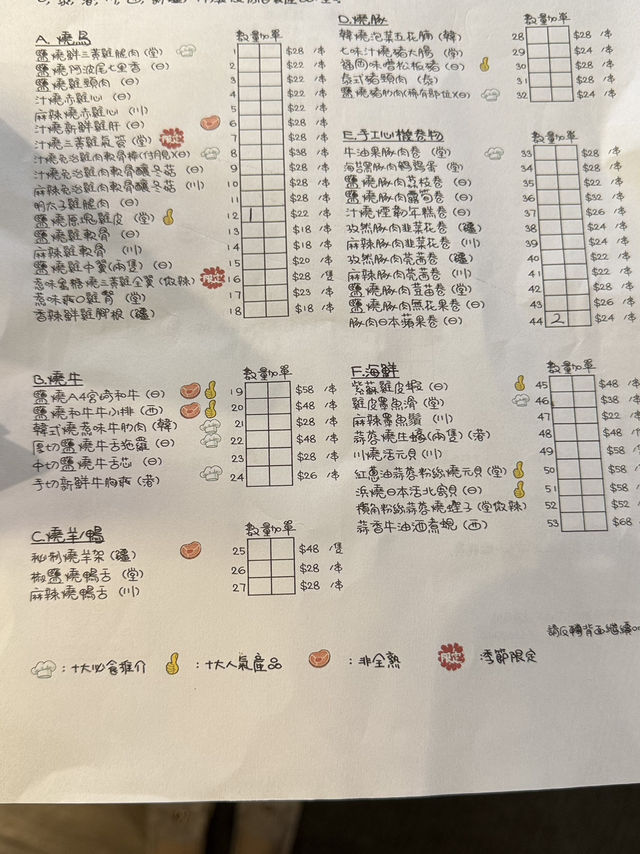 A.燒鳥 數量加單
鹽燒鮮三黃雞腿肉(堂) 1 $28 /串
鹽燒阿波尾七里香(日) 2 $22 /串
鹽燒雞頸肉(日) 3 $22 /串
汁燒赤雞心(日) 4 $22 /串
麻辣燒赤雞心(川) 5 $22 /串
汁燒新鮮雞肝(日) 6 $28 /串
汁燒三黃雞氣管(堂) 限定 7 $28 /串
汁燒免治雞肉軟骨棒(付月見)(日) 8 $38 /串
汁燒免治雞肉軟骨釀冬菇(日) 9 $28 /串
麻辣免治雞肉軟骨釀冬菇(川) 10 $28 /串
明太子雞腿肉(日) 11 $32 /串
鹽燒原塊雞皮(堂) 12 1 $22 /串
鹽燒雞軟骨(日) 13 $18 /串
麻辣雞軟骨(川) 14 $18 /串
鹽燒雞中翼(兩隻)(日) 15 $20 /串
惹味蜜糖燒三黃雞全翼(微辣) 限定 16 $28 /隻
惹味爽口雞腎(堂) 17 $23 /串
香辣鮮雞腳根(疆) 18 $18 /串
B.燒牛 數量加單
鹽燒A4宮崎和牛(日) 19 $58 /串
鹽燒和牛牛小排(西) 20 $48 /串
韓式燒惹味牛肋肉(韓) 21 $28 /串
厚切鹽燒牛舌拖羅(日) 22 $48 /串
中切鹽燒牛舌芯(日) 23 $28 /串
手切新鮮牛胸爽(港) 24 $26 /串
C.燒羊/鴨 數量加單
秘制燒羊架(疆) 25 $48 /隻
椒鹽燒鴨舌(堂) 26 $28 /串
麻辣燒鴨舌(川) 27 $28 /串
D.燒豚 數量加單
韓燒泡菜五花腩(韓) 28 $28 /串
七味汁燒豬大腸(堂) 29 $24 /串
福岡味噌松板豬(日) 30 $28 /串
泰式豬頸肉(泰) 31 $28 /串
鹽燒豬肋肉(稀有部位)(日) 32 $24 /串
E.手工心機卷物 數量加單
牛油果豚肉卷(堂) 33 $28 /串
海苔豚肉鵪鶉蛋(堂) 34 $28 /串
鹽燒豚肉荔枝卷(日) 35 $22 /串
鹽燒豚肉露筍卷(日) 36 $32 /串
汁燒煙韌年糕卷(日) 37 $26 /串
孜然豚肉韭菜花卷(疆) 38 $24 /串
麻辣豚肉韭菜花卷(川) 39 $24 /串
孜然豚肉芫茜卷(疆) 40 $22 /串
麻辣豚肉芫茜卷(川) 41 $22 /串
鹽燒豚肉金菇卷(堂) 42 $28 /串
鹽燒豚肉無花果卷(日) 43 $26 /串
豚肉日本蘋果卷(日) 44 2 $24 /串
F.海鮮 數量加單
紫蘇雞皮蝦(日) 45 $48 /串
雞皮墨魚滑(堂) 46 $38 /串
麻辣墨魚鬚(川) 47 $22 /串
蒜蓉燒生蠔(兩隻)(港) 48 $48
川燒活元貝(川) 49 $58
紅蔥油蒜蓉粉絲燒元貝(堂) 50 $58
浜燒日本活北寄貝(日) 51 $58
獨角粉絲蒜蓉燒蟶子(堂微辣) 52 $52
蒜香牛油酒煮蜆(西) 53 $68
請反轉背面繼續
:十大必食推介 :十大人氣產品 :非全熟 限定 :季節限定